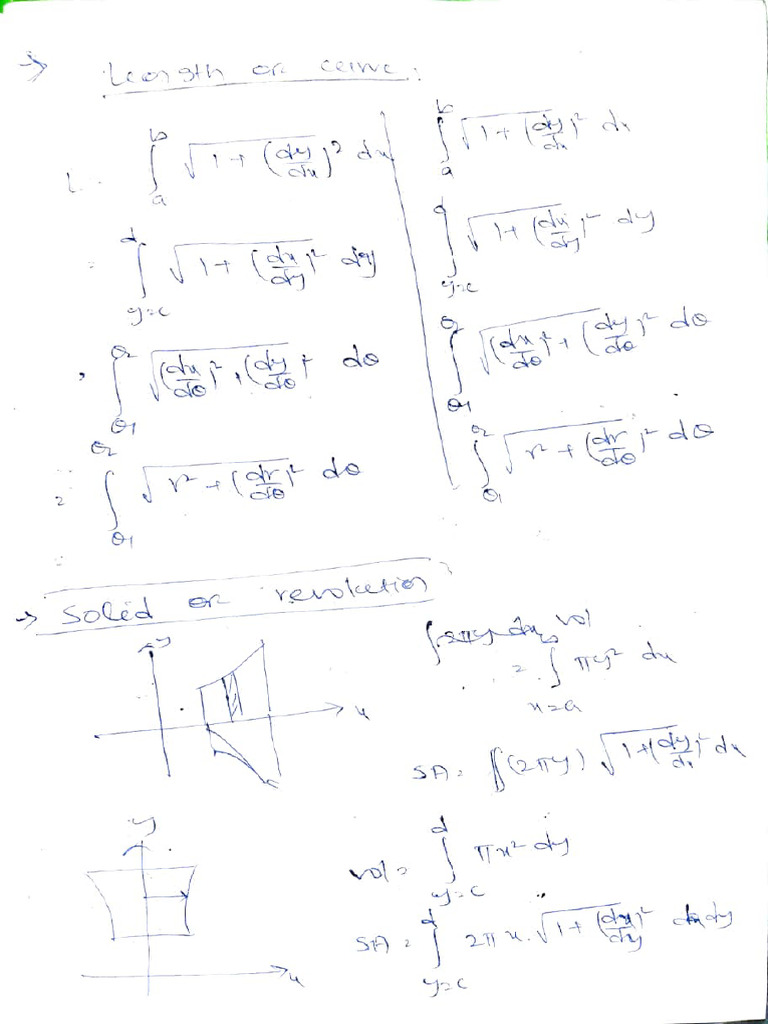 → Length or curve:
L = ∫_a^b √(1 + (dy/dx)²) dx
= ∫_{y=c}^d √(1 + (dx/dy)²) dy
= ∫_{θ1}^{θ2} √((dx/dθ)² + (dy/dθ)²) dθ
= ∫_{θ1}^{θ2} √(r² + (dr/dθ)²) dθ
=
∫_a^b √(1 + (dy/dx)²) dx
∫_{y=c}^d √(1 + (dx/dy)²) dy
∫_{θ1}^{θ2} √((dx/dθ)² + (dy/dθ)²) dθ
∫_{θ1}^{θ2} √(r² + (dr/dθ)²) dθ
→ Solid or revolution
y
x
Vol
= ∫_{x=a}^b πy² dx
SA = ∫(2πy) √(1 + (dy/dx)²) dx
y
x
Vol = ∫_{y=c}^d πx² dy
SA = ∫_{y=c}^d 2πx.√(1 + (dx/dy)²) dy